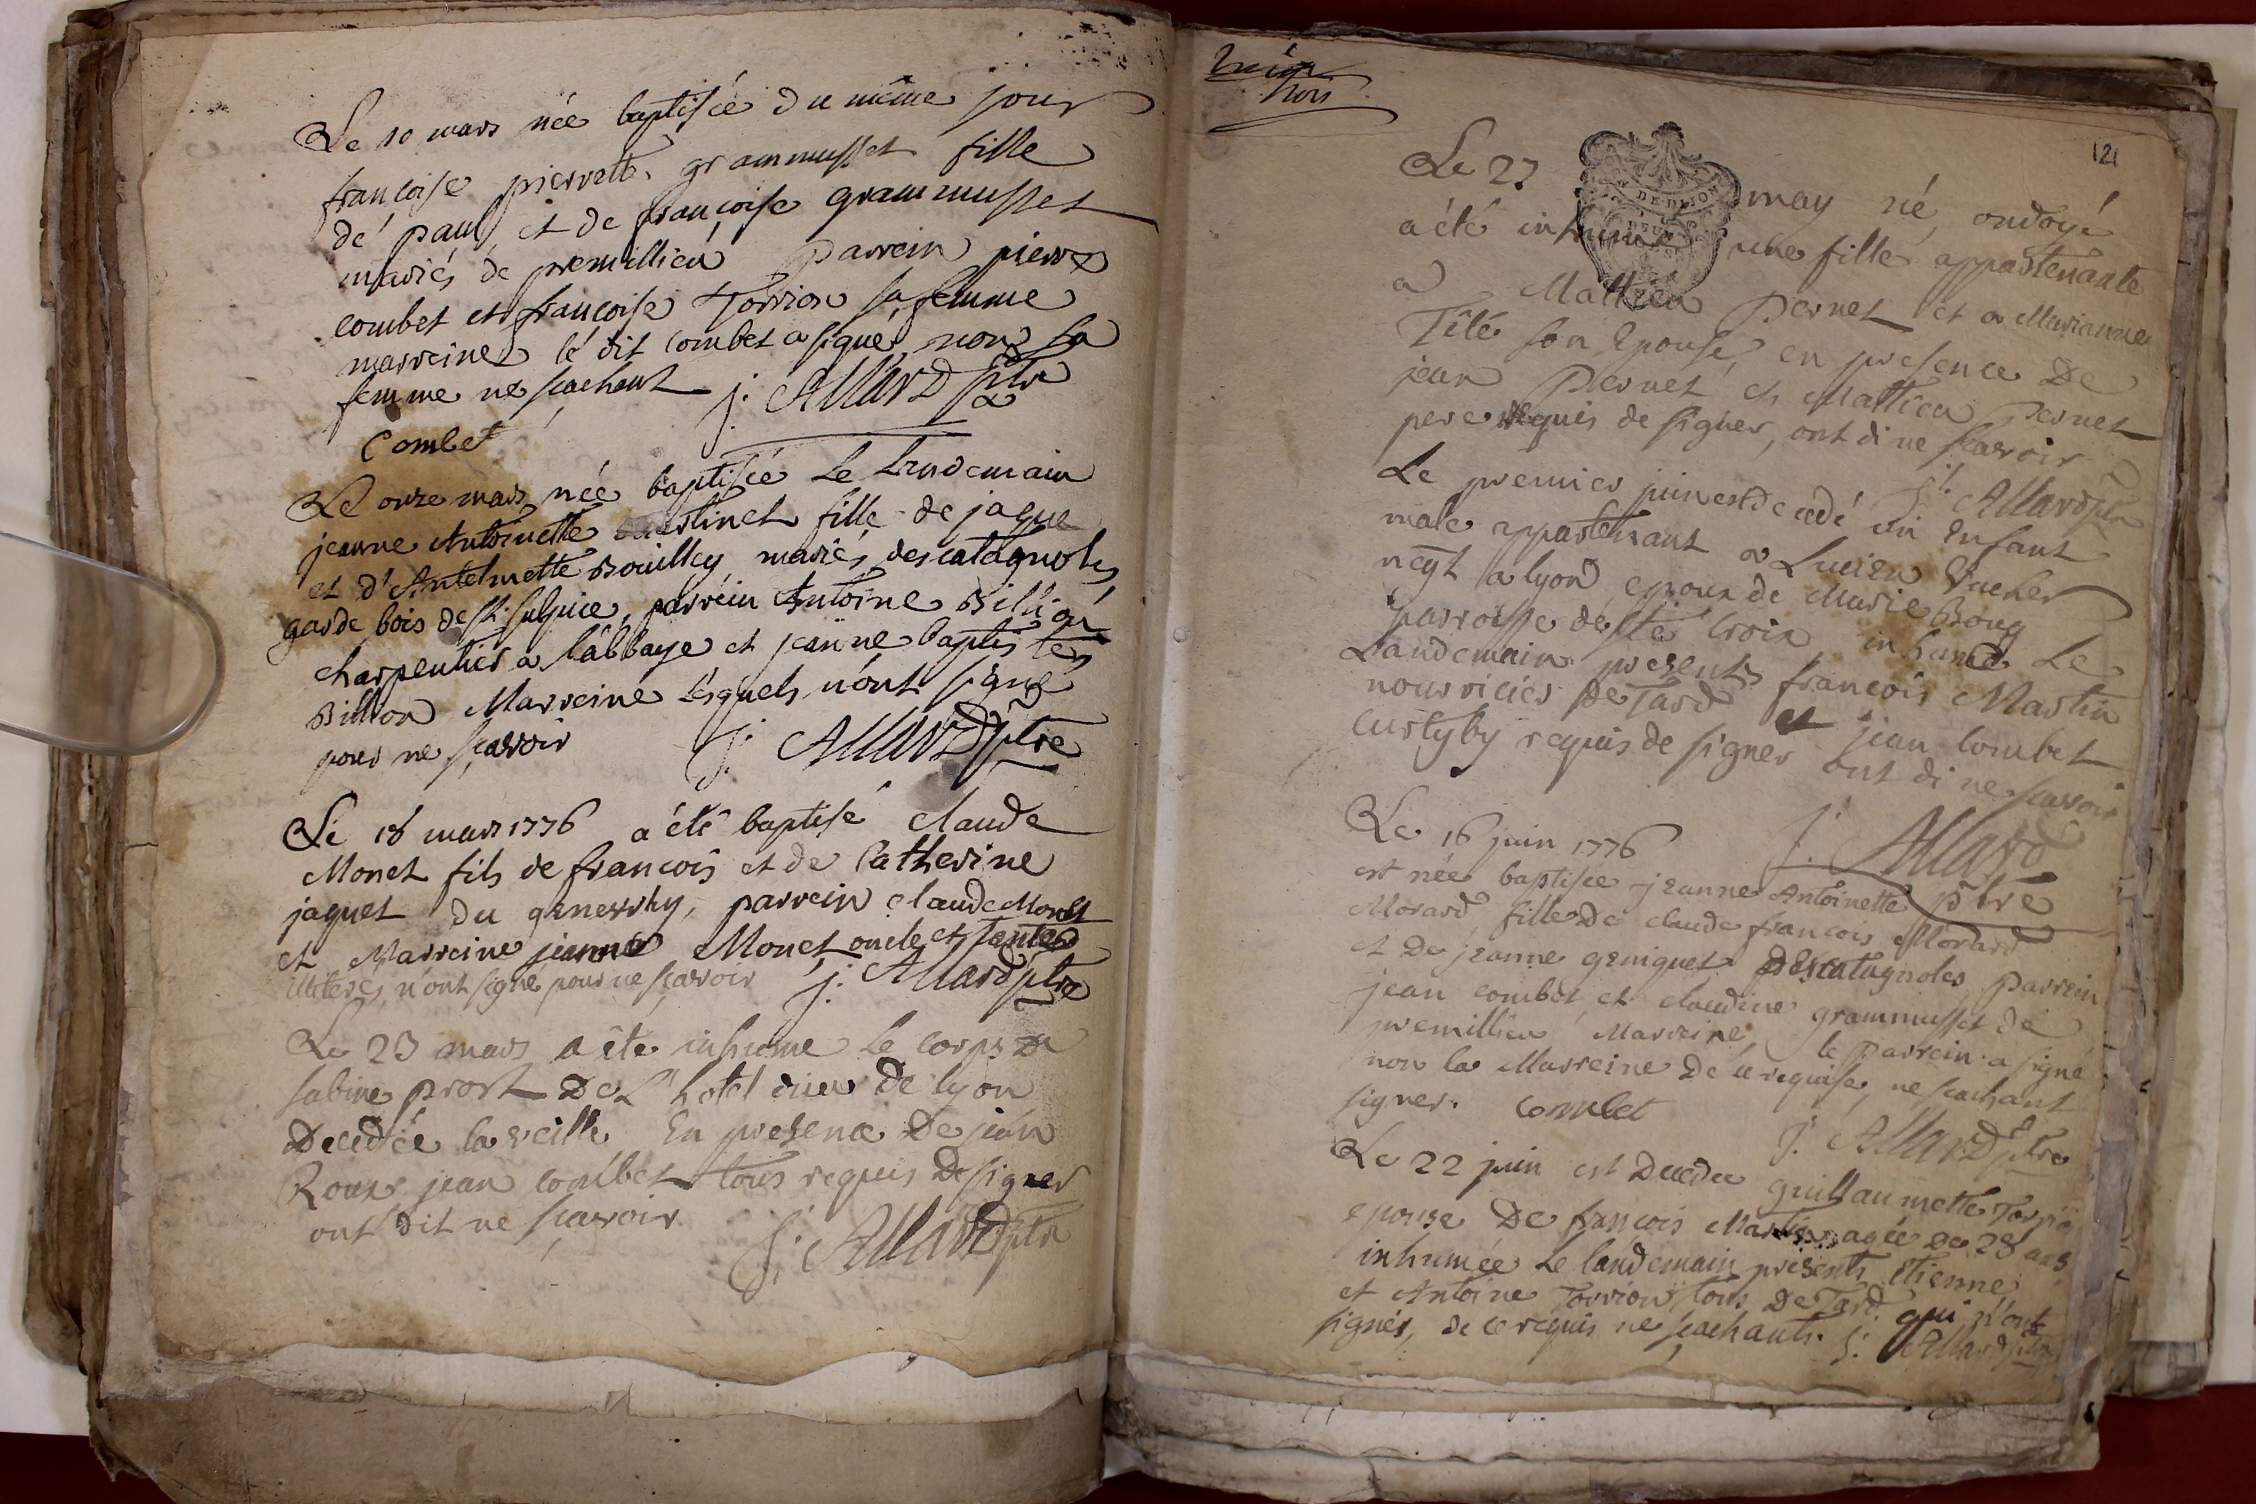 Le 10 mars née baptisée du même jour
françoise pierrette grammusset fille
de paul et de françoise grammusset
mariés de premillieu parrein pierre
combet et françoise Torrion sa femme
marreine le dit Combet a signé non sa
femme ne scachant j: Allard ptre
Combet
Le onze mars née baptisée Le Lendemain
jeanne Antoinette fille de jaque
et d'Antelmette Bouilley mariés, des catagnoles,
garde bois de st: sulpice, parrein Antoine Billion
charpentier a l'abbaye et jeanne baptis tes
Billion Marreine Lesquels n'ont signé
pour ne scavoir j: Allard ptre
Le 18 mars 1776 a été baptisé claude
Monet fils de françois et de Catherine
jaquet du genevrhy, parrein claude Monet
et Marreine jeanne Monet, oncle et tante
illiterés, n'ont signé pour ne scavoir j: Allard ptre
Le 23 mars a été inhume Le corps de
sabine prost De L'hotel dieu de lyon
Decedée la veille En presence De jean
Roux jean combet tous requis De signer
ont dit ne scavoir j: Allard ptre
trois
121
Le 27 may né, ondoyé
a été inhumé une fille appartenante
a Mathieu Pernet et a Marianne
Tité son Epouse, en presence De
jean Pernet et Mathieu Pernet
pere requis de signer, ont di ne scavoir
j: Allard ptre
Le premier juin est decedé un Enfant
male appartenant a Lucien Vacher
negt a lyon epoux de Marie Boug
parroisse de ste Croix inhumé Le
Landemain presents françois Martin
nourricier De Tard et jean Combet
Curtyby requis de signer ont di ne scavoir
j: Allard
ptre
Le 16 juin 1776
est née baptisée jeanne Antoinette
Morard fille De claude françois Morard
et De jeanne geniquet Des catagnoles, parrein
jean combet, et claudine grammusset de
premillieu Marreine, le parrein a signé
non la Marreine De ce requise, ne scachant
signer. Combet
j: Allard ptre
Le 22 juin est Decedée guillaumette Torrion
epouse De françois Martin agée de 28 ans
inhumée Le landemain presents Etienne
et Antoine Torrion tous De Tard qui n'ont
signés, de ce requis ne scachants. j: Allard ptre